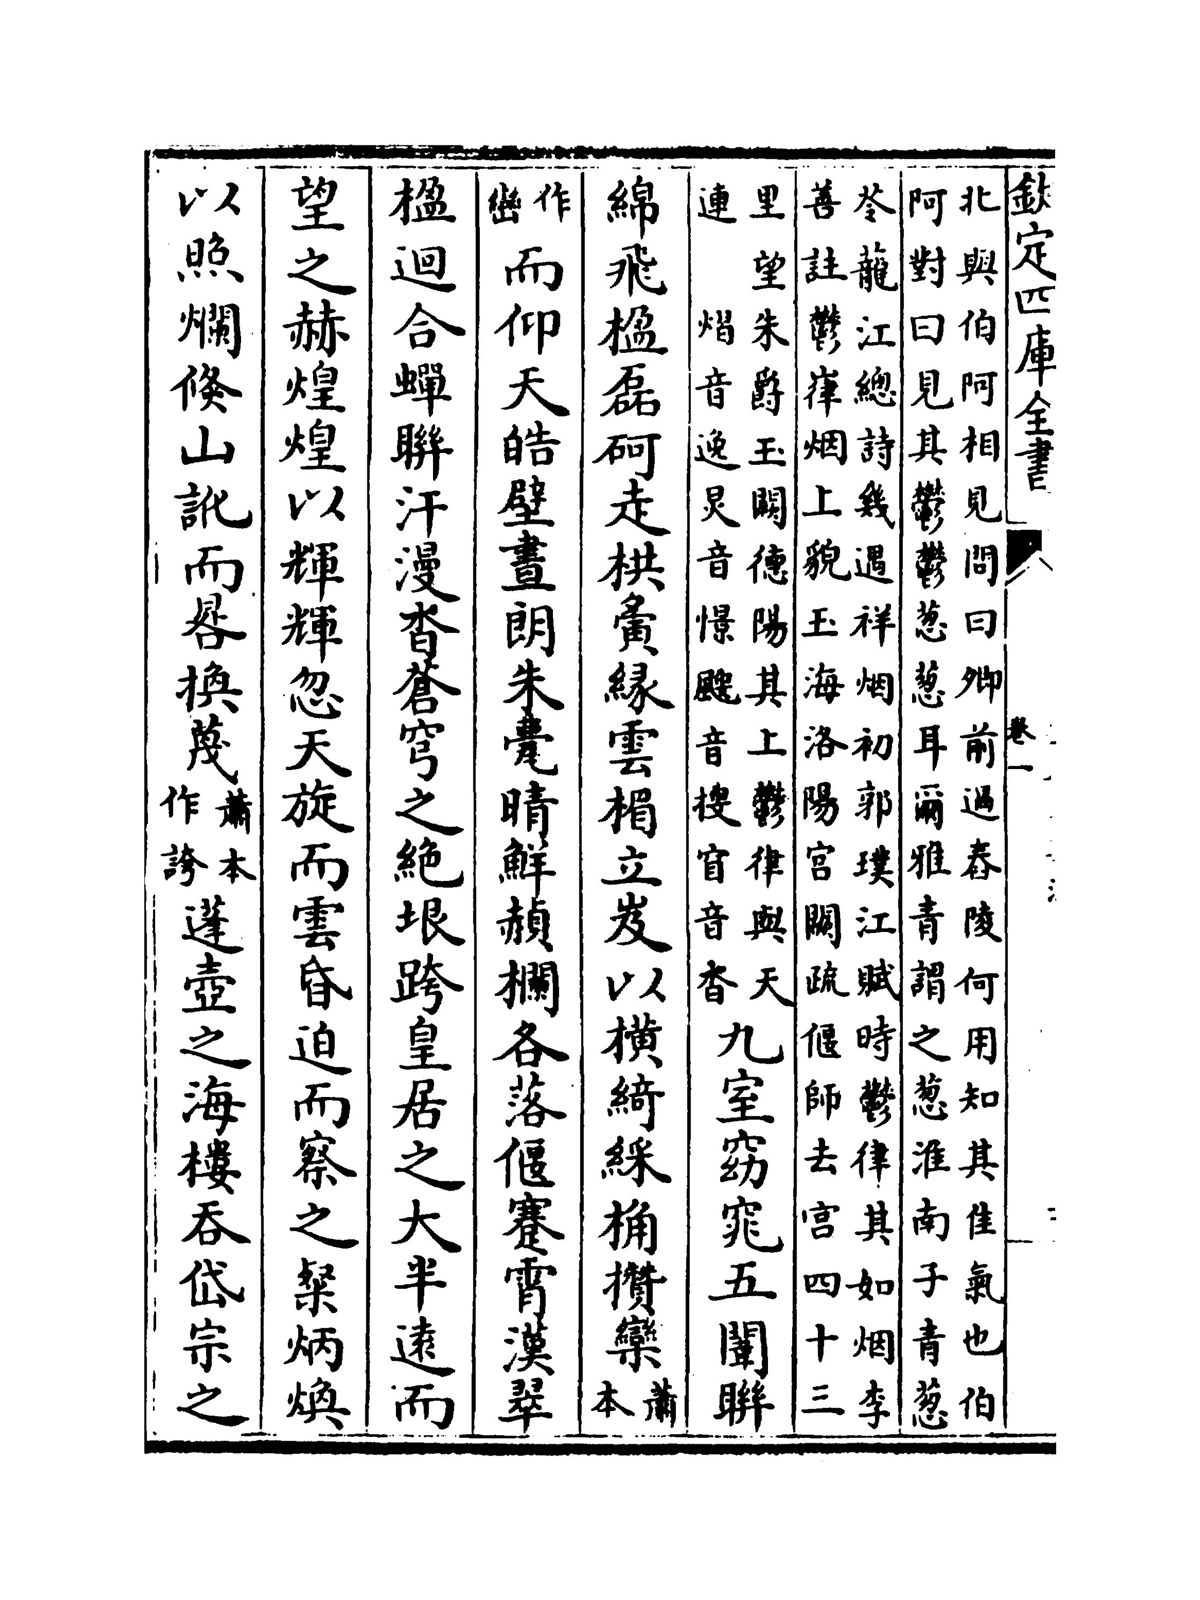 欽定四庫全書
卷一
北與伯阿相見問曰卿前過舂陵何用知其佳氣也伯
阿對曰見其鬱鬱葱葱耳爾雅青謂之葱淮南子青葱
苓龍江總詩幾遇祥烟初郭璞江賦時鬱律其如烟李
善註鬱嵂烟上貌玉海洛陽宫闕疏偃師去宫四十三
里望朱爵玉闕德陽其上鬱律與天
連 熠音逸炅音憬颼音搜窅音杳
九室窈窕五闈聯
綿飛楹磊砢走栱夤緣雲楣立岌以橫綺綵桷攢欒蕭本
作巒而仰天皓壁晝朗朱甍晴鮮赬欄各落偃蹇霄漢翠
楹迴合蟬聯汗漫沓蒼穹之絶垠跨皇居之大半遠而
望之赫煌煌以輝輝忽天旋而雲昏迫而察之粲炳煥
以照爛倐山訛而晷換蔑蕭本作誇蓬壺之海樓吞岱宗之